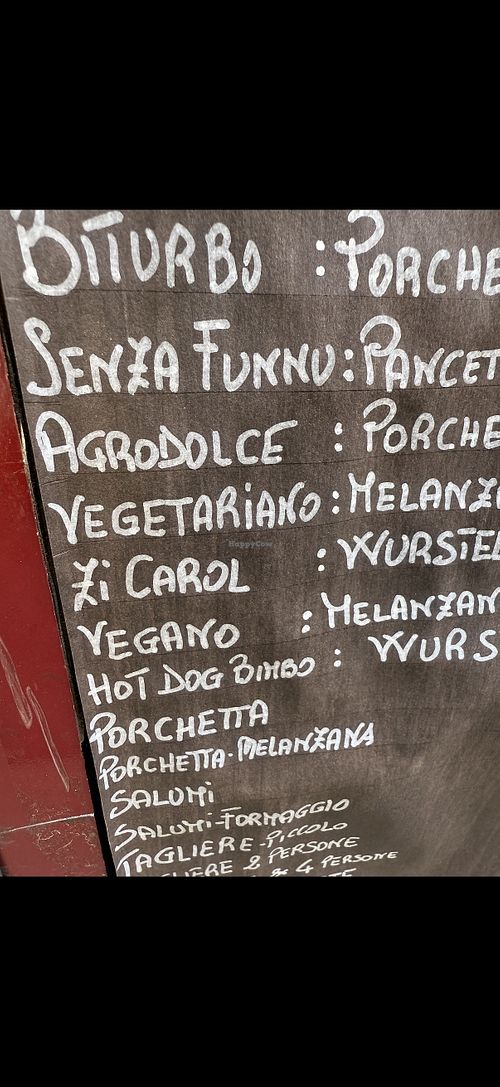 BITURBO : PORCHE
SENZA FUNNU : PANCET
AGRODOLCE : PORCHE
VEGETARIANO : MELANZA
ZI CAROL : WURSTEL
VEGANO : MELANZAN
HOT DOG BIMBO : WURS
PORCHETTA
PORCHETTA-MELANZANA
SALUMI
SALUMI-FORMAGGIO
TAGLIERE-PICCOLO
LIERE 2 PERSONE
4 PERSONE
HappyCow